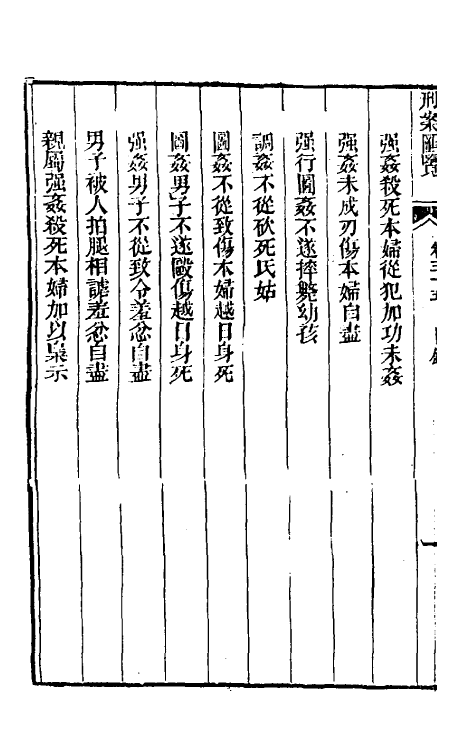 刑案匯覽
卷三十五 目錄 一
强姦殺死本婦從犯加功未姦
强姦未成刃傷本婦自盡
强行圖姦不遂摔斃幼孩
調姦不從砍死氏姑
圖姦不從致傷本婦越日身死
圖姦男子不遂毆傷越日身死
强姦男子不從致令羞忿自盡
男子被人拍腿相謔羞忿自盡
親屬强姦殺死本婦加以梟示